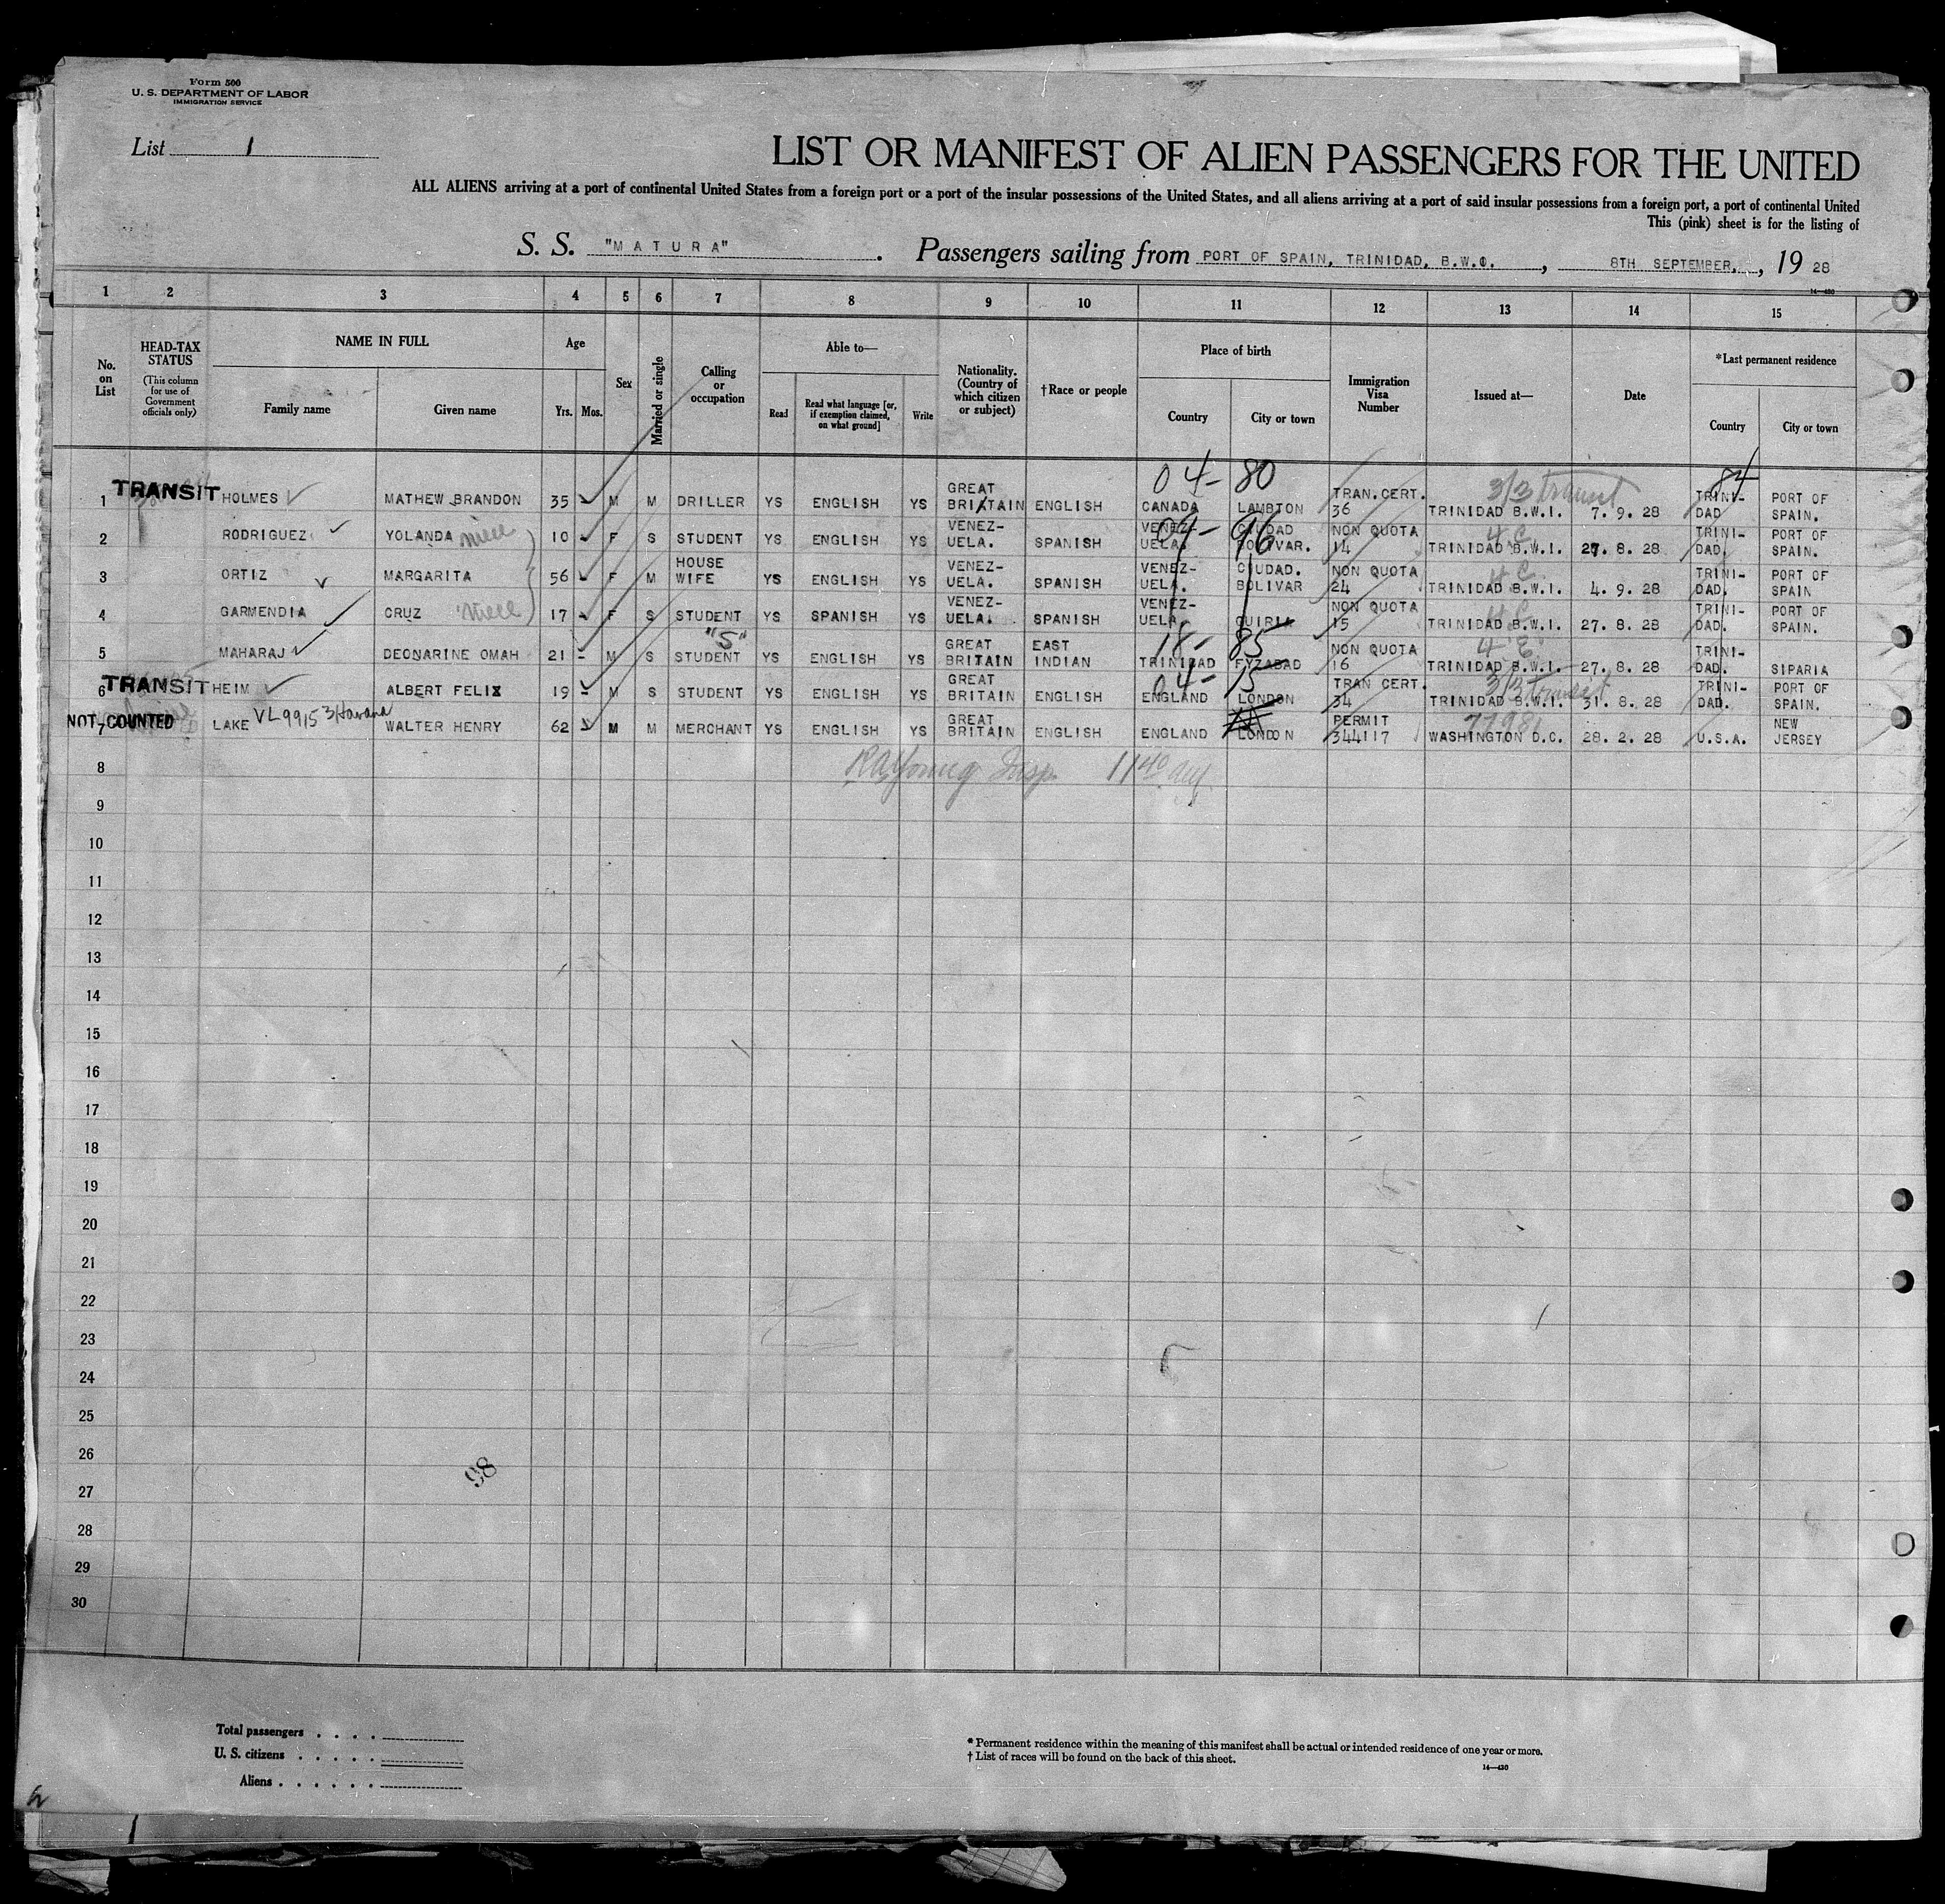 Form 500
U. S. DEPARTMENT OF LABOR
IMMIGRATION SERVICE
List 1
LIST OR MANIFEST OF ALIEN PASSENGERS FOR THE UNITED
ALL ALIENS arriving at a port of continental United States from a foreign port or a port of the insular possessions of the United States, and all aliens arriving at a port of said insular possessions from a foreign port, a port of continental United
This (pink) sheet is for the listing of
S. S. "MATURA" . Passengers sailing from PORT OF SPAIN, TRINIDAD, B.W.I. , 8TH SEPTEMBER, , 19 28
14—430
1 2 3 4 5 6 7 8 9 10 11 12 13 14 15
No. on List
HEAD-TAX STATUS
(This column for use of Government officials only)
NAME IN FULL
Family name
Given name
Age
Yrs.
Mos.
Sex
Married or single
Calling or occupation
Able to—
Read
Read what language [or, if exemption claimed, on what ground]
Write
Nationality. (Country of which citizen or subject)
†Race or people
Place of birth
Country
City or town
Immigration Visa Number
Issued at—
Date
*Last permanent residence
Country
City or town
04-80 3/3 transit 84
1 TRANSIT HOLMES MATHEW BRANDON 35 - M M DRILLER YS ENGLISH YS GREAT BRITAIN ENGLISH CANADA LAMBTON TRAN.CERT. 36 TRINIDAD B.W.I. 7. 9. 28 TRINI-DAD PORT OF SPAIN.
04-96 4 C
2 RODRIGUEZ YOLANDA niece 10 - F S STUDENT YS ENGLISH YS VENEZ-UELA. SPANISH VENEZ-UELA. CIUDAD BOLIVAR. NON QUOTA 14 TRINIDAD B.W.I. 27. 8. 28 TRINI-DAD. PORT OF SPAIN.
4 C
3 ORTIZ MARGARITA 56 - F M HOUSE WIFE YS ENGLISH YS VENEZ-UELA. SPANISH VENEZ-UELA. CIUDAD. BOLIVAR NON QUOTA 24 TRINIDAD B.W.I. 4. 9. 28 TRINI-DAD. PORT OF SPAIN
4 C
4 GARMENDIA CRUZ niece 17 - F S STUDENT YS SPANISH YS VENEZ-UELA. SPANISH VENEZ-UELA. GUIRIA NON QUOTA 15 TRINIDAD B.W.I. 27. 8. 28 TRINI-DAD. PORT OF SPAIN.
"S" 18-85 4 E
5 MAHARAJ DEONARINE OMAH 21 - M S STUDENT YS ENGLISH YS GREAT BRITAIN EAST INDIAN TRINIDAD FYZABAD NON QUOTA 16 TRINIDAD B.W.I. 27. 8. 28 TRINI-DAD. SIPARIA
04-15 3/3 transit
6 TRANSIT HEIM ALBERT FELIX 19 - M S STUDENT YS ENGLISH YS GREAT BRITAIN ENGLISH ENGLAND LONDON TRAN CERT. 34 TRINIDAD B.W.I. 31. 8. 28 TRINI-DAD. PORT OF SPAIN.
VL 9915 3/Havana
7 NOT COUNTED LAKE WALTER HENRY 62 - M M MERCHANT YS ENGLISH YS GREAT BRITAIN ENGLISH ENGLAND LONDON PERMIT 344117 WASHINGTON D.C. 28. 2. 28 U.S.A. NEW JERSEY
8 Insp. 11 40
9
10
11
12
13
14
15
16
17
18
19
20
21
22
23
24
25
26
98
27
28
29
30
Total passengers . . . .
U. S. citizens . . . . .
Aliens . . . . . .
* Permanent residence within the meaning of this manifest shall be actual or intended residence of one year or more.
† List of races will be found on the back of this sheet.
14—430